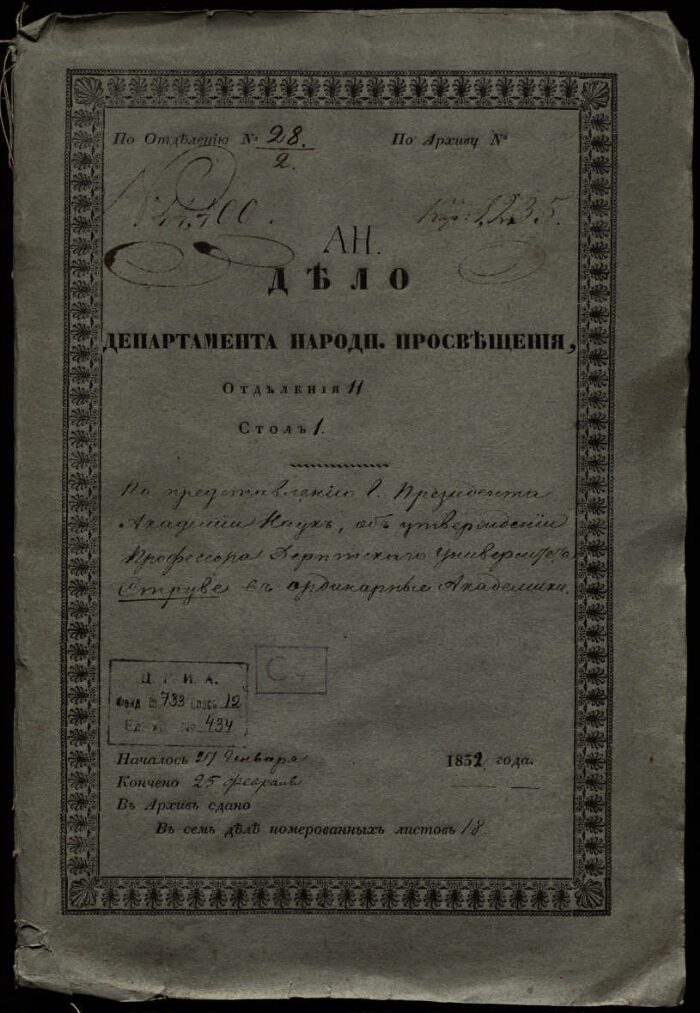 По Отдѣленію № 28.
2.
По Архиву №
№ 44,400.
Кар: 2235.
АН.
ДѢЛО
ДЕПАРТАМЕНТА НАРОДН. ПРОСВѢЩЕНІЯ,
Отдѣленія 11
Столъ 1.
По представленію Г. Президента
Академіи Наукъ, объ утвержденіи
Профессора Дерптскаго Университета
Струве въ ординарные Академики.
Ц. Г. И. А.
Фонд № 733 Опись 12
Ед. хр. № 434
С
Началось 27 Января 1832 года.
Кончено 25 февраля
Въ Архивъ сдано
Въ семъ дѣлѣ номерованныхъ листовъ 18